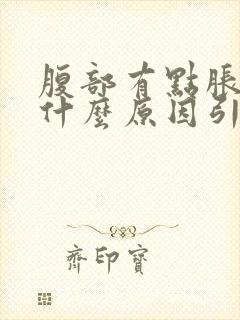 腹部有點脹
什麼原因引
齊印寶